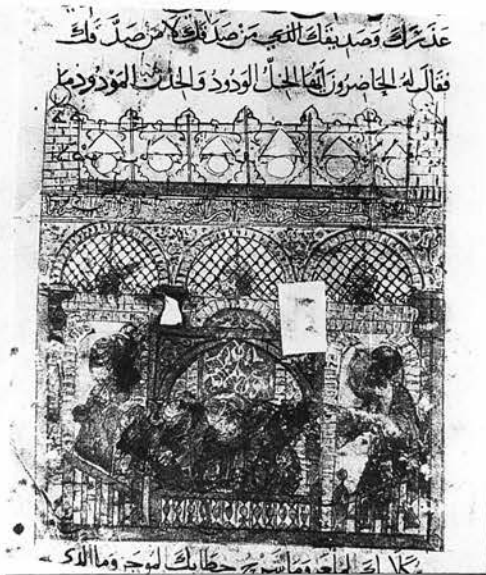 عَذَرَكَ وَصَدِيقَكَ الذي مَنْ صَدَقَكَ لا مَن صَدَّقَكَ
فقالَ لهُ الحاضِرُونَ أَيُّها الخِلُّ الوَدُودُ وَالخِدْنُ المَوْدُودُ مَا
كلامك الملغز وما شرح خطابك الموجز وما الذي